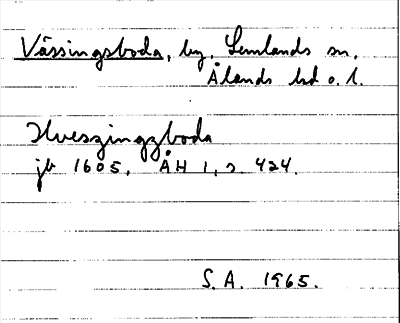 Vässingsboda, by. Lemlands sn.
Ålands hd o. l.
Hveszingzboda
jb 1605. ÅH 1, s. 424.
S. A. 1965.